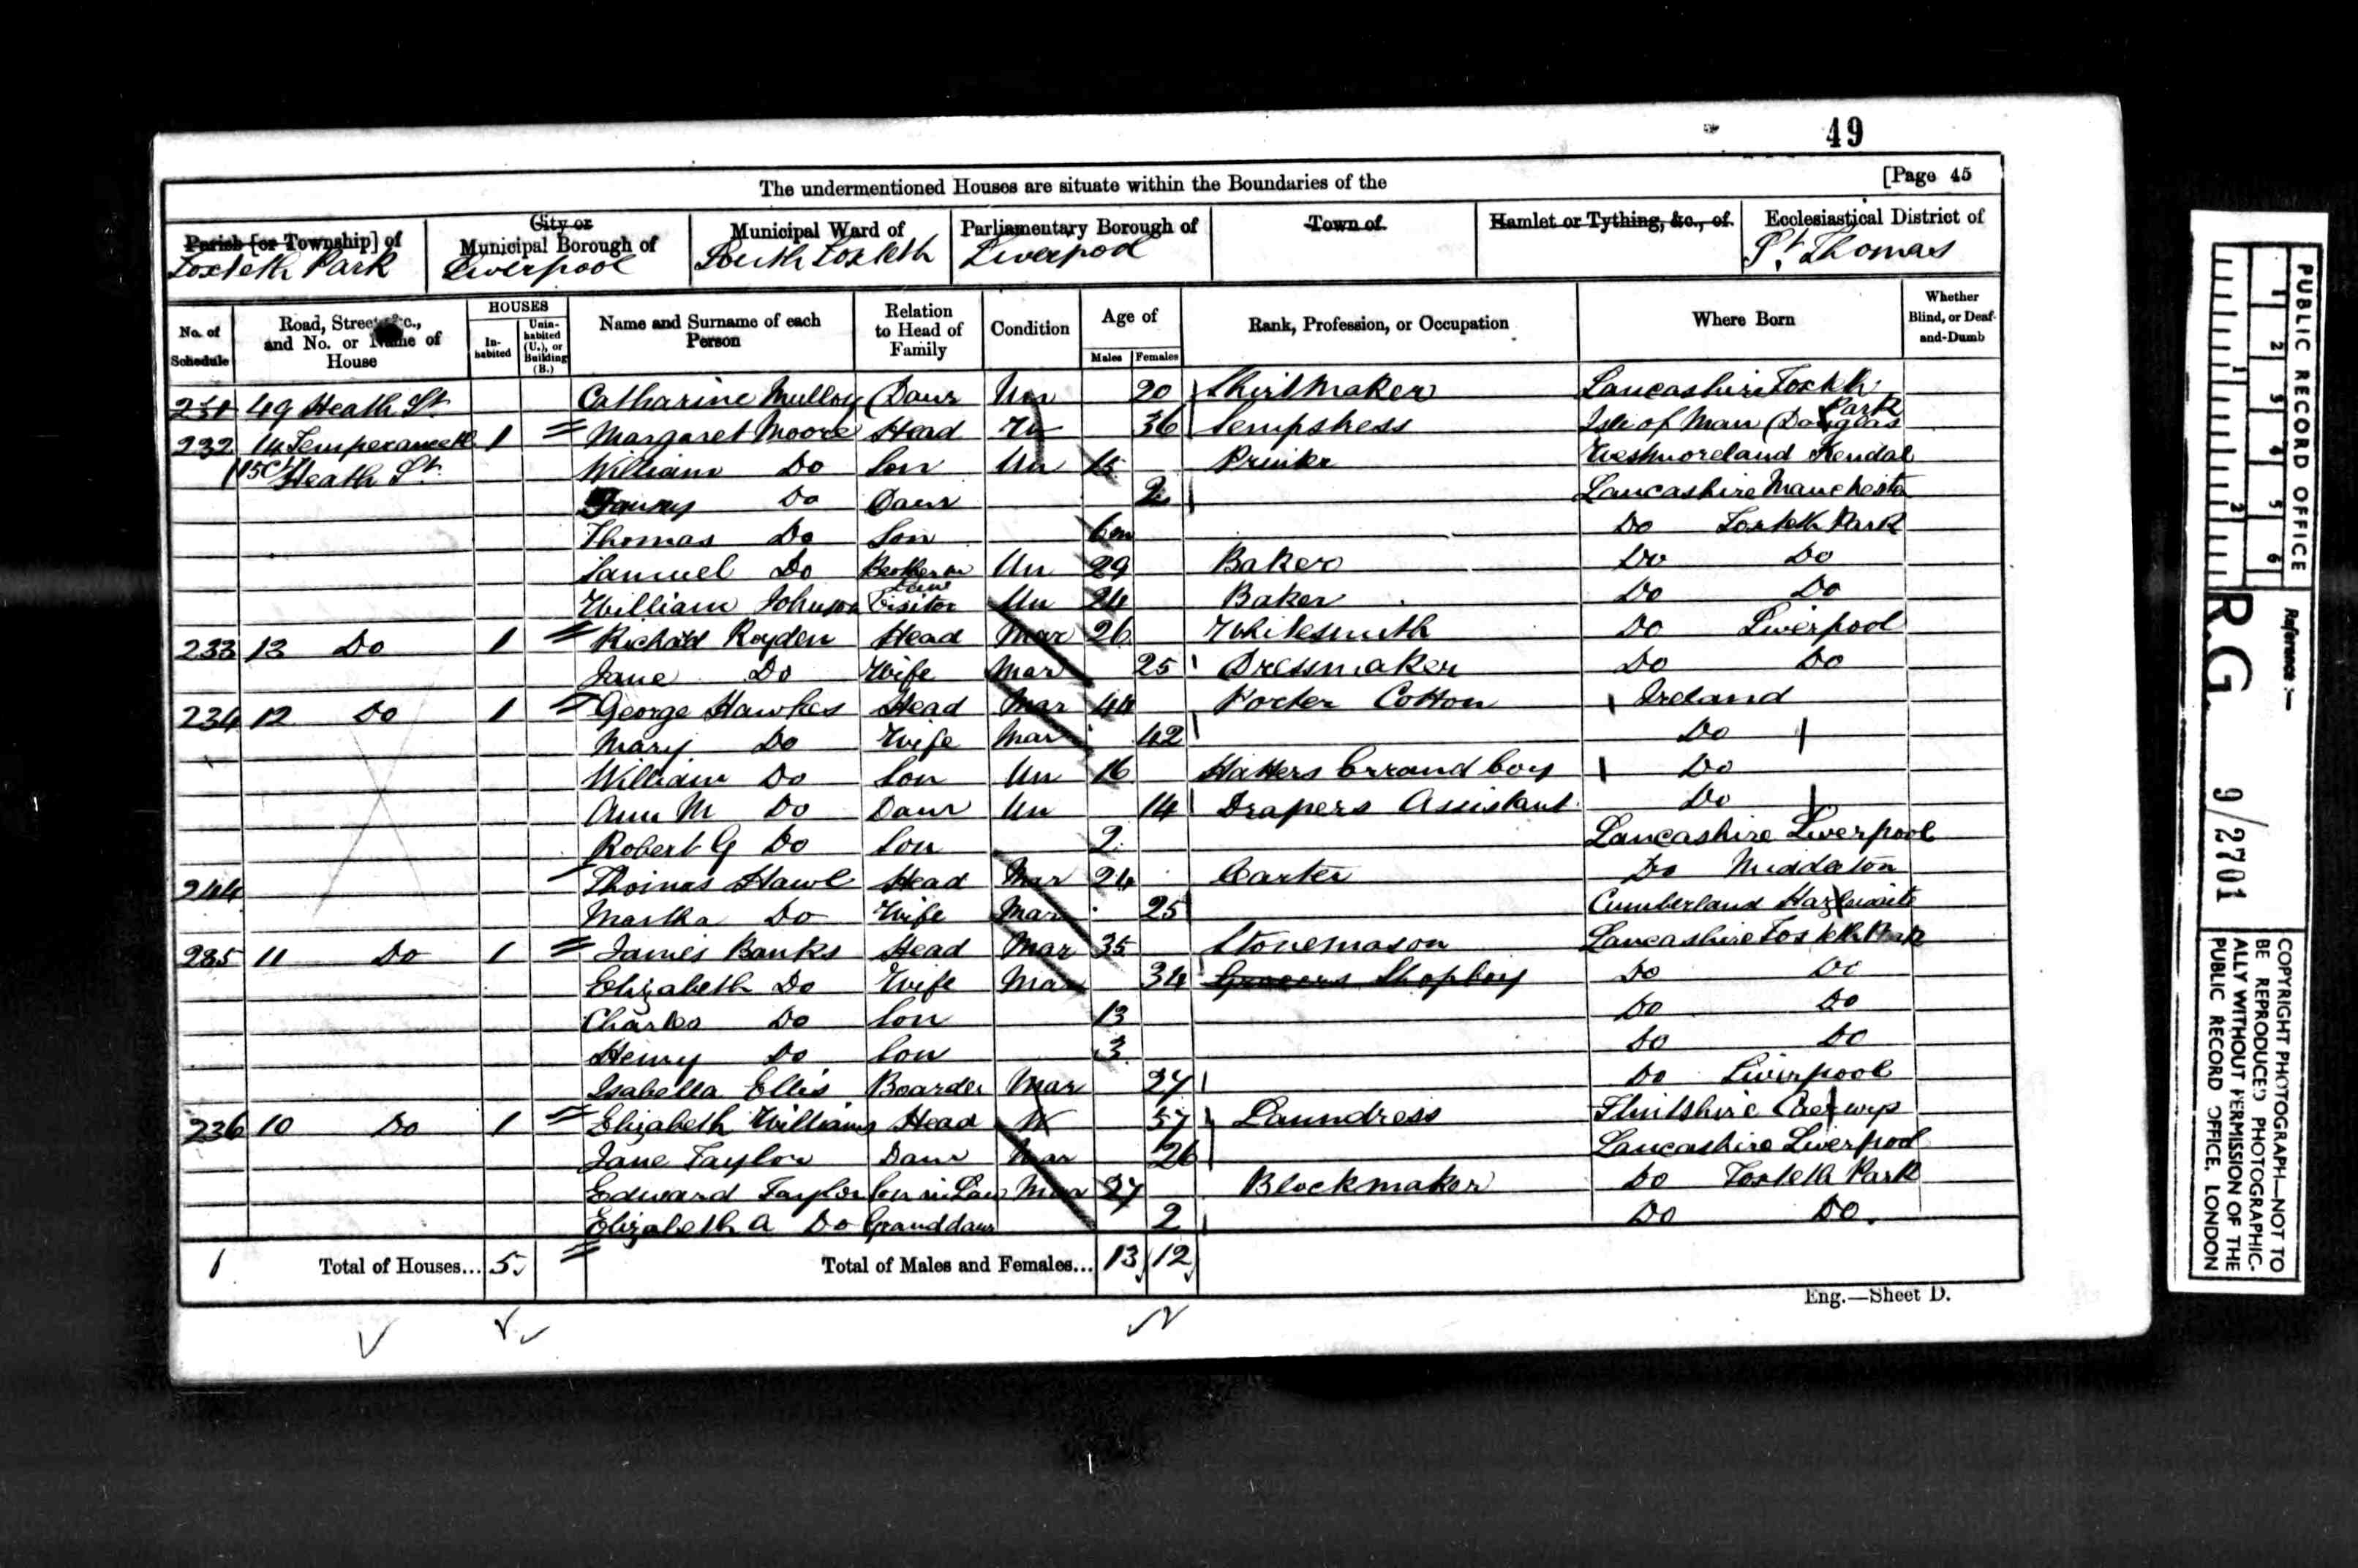 49
The undermentioned Houses are situate within the Boundaries of the [Page 45
Parish [or Township] of City or Municipal Borough of Municipal Ward of Parliamentary Borough of Town of Hamlet or Tything, &c., of Ecclesiastical District of
Toxteth Park Liverpool South Toxteth Liverpool St. Thomas
No. of Schedule Road, Street, &c., and No. or Name of House HOUSES Inhabited Uninhabited (U.), or Building (B.) Name and Surname of each Person Relation to Head of Family Condition Age of Males Females Rank, Profession, or Occupation Where Born Whether Blind, or Deaf-and-Dumb
231 49 Heath St Catharine Mulloy Daur Un 20 Shirtmaker Lancashire Toxteth Park
232 14 Temperance 1 Margaret Moore Head 36 Sempstress Isle of Man Douglas
15 Ct Heath St William Do Son Un 15 Printer Westmoreland Kendal
Fanny Do Daur 2 Lancashire Manchester
Thomas Do Son 6m Do Toxteth Park
Samuel Do Brother in Law Un 29 Baker Do Do
William Johnson Visitor Un 24 Baker Do Do
233 13 Do 1 Richard Royden Head Mar 26 Whitesmith Do Liverpool
Jane Do Wife Mar 25 Dressmaker Do Do
234 12 Do 1 George Hawkes Head Mar 44 Porter Cotton Ireland
Mary Do Wife Mar 42 Do
William Do Son Un 16 Hatters Errand boy Do
Ann M Do Daur Un 14 Drapers Assistant Do
Robert G Do Son 2 Lancashire Liverpool
244 Thomas Hawl Head Mar 24 Carter Do Middleton
Martha Do Wife Mar 25 Cumberland
235 11 Do 1 James Banks Head Mar 35 Stonemason Lancashire Toxteth Park
Elizabeth Do Wife Mar 34 Grocers Shopboy Do Do
Charles Do Son 13 Do Do
Henry Do Son 3 Do Do
Isabella Ellis Boarder Mar 27 Do Liverpool
236 10 Do 1 Elizabeth Williams Head W 57 Laundress Flintshire Caerwys
Jane Taylor Daur Mar 26 Lancashire Liverpool
Edward Taylor Son in Law Mar 27 Blockmaker Do Toxteth Park
Elizabeth A Do Granddaur 2 Do Do.
1 Total of Houses... 5 Total of Males and Females... 13 12
Eng.—Sheet D.
PUBLIC RECORD OFFICE
1 2 3 4 5 6
1 2
Reference:—
R.G. 9/2701
COPYRIGHT PHOTOGRAPH—NOT TO
BE REPRODUCED PHOTOGRAPHIC-
ALLY WITHOUT PERMISSION OF THE
PUBLIC RECORD OFFICE, LONDON